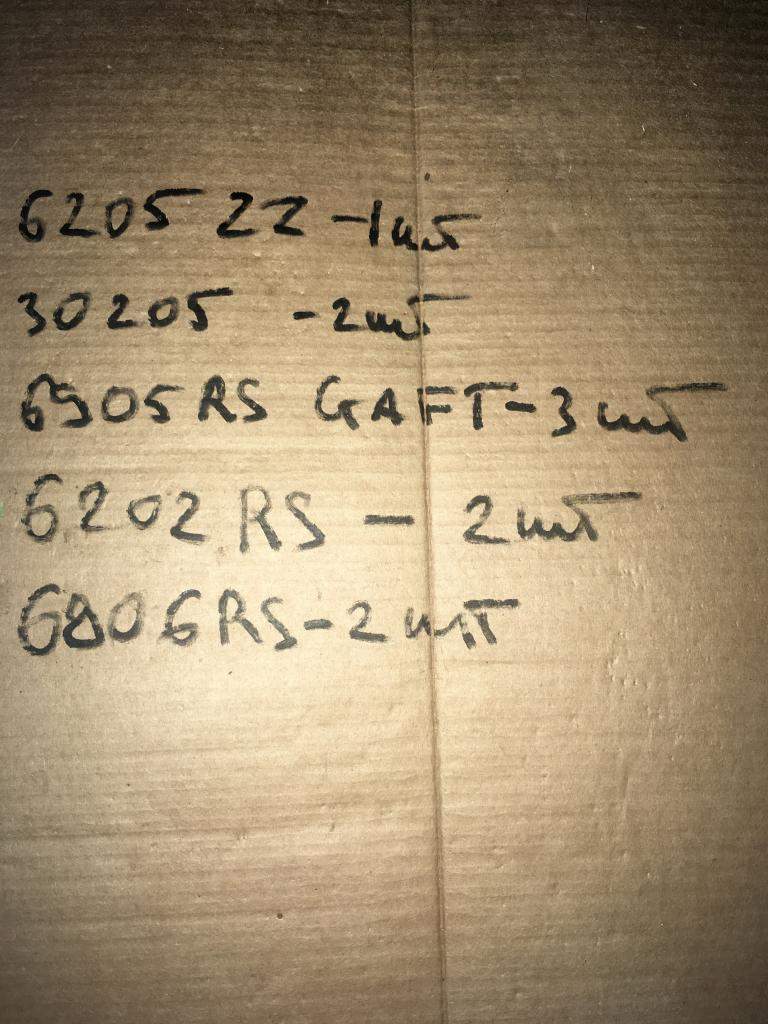 6205 ZZ -1шт
30205 -2шт
6905RS GAFT-3шт
6202RS - 2шт
6806RS-2шт